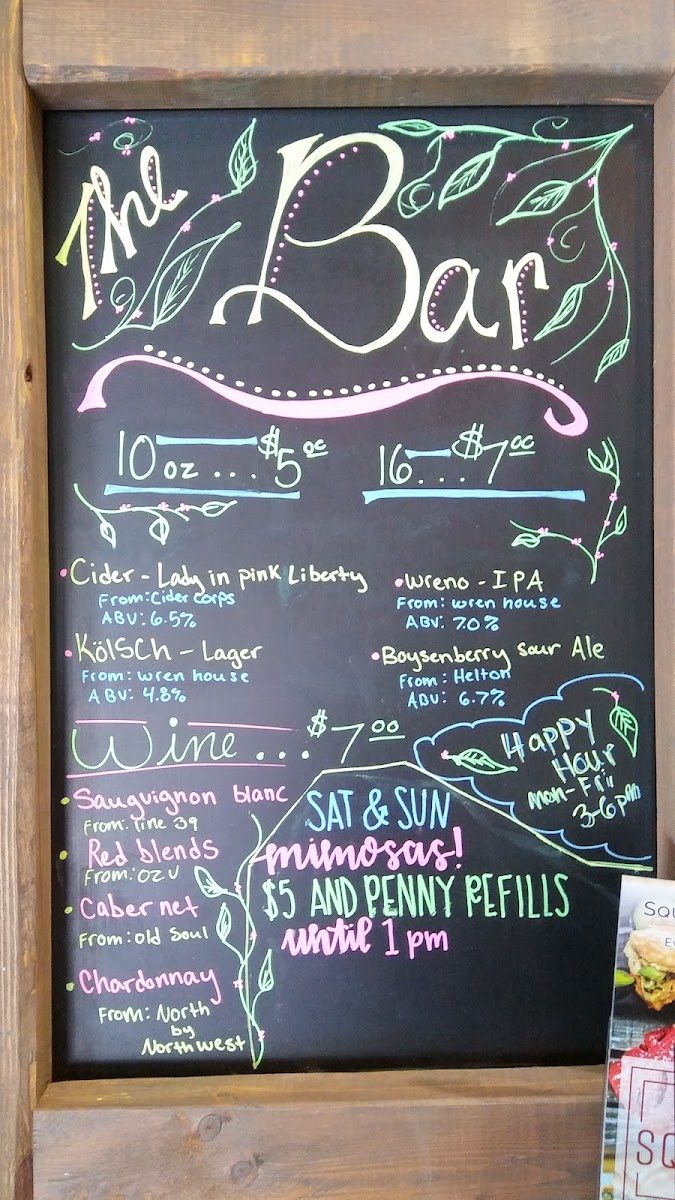 The Bar
10 oz ... $5 00
16 ... $7 00
• Cider - Lady in pink Liberty
From: Cider Corps
ABV: 6.5%
• Wreno - IPA
From: wren house
ABV: 7.0%
• KölSCh - Lager
From: wren house
ABV: 4.8%
• Boysenberry Sour Ale
From: Helton
ABV: 6.7%
Wine ... $7 00
Happy
Hour
Mon-Fri
3-6pm
• Sauguvignon blanc
From: Tine 39
• Red blends
From: OZV
• Cabernet
From: old Soul
• Chardonnay
From: North
by
North west
SAT & SUN
mimosas!
$5 AND PENNY REFILLS
until 1 pm
SQ